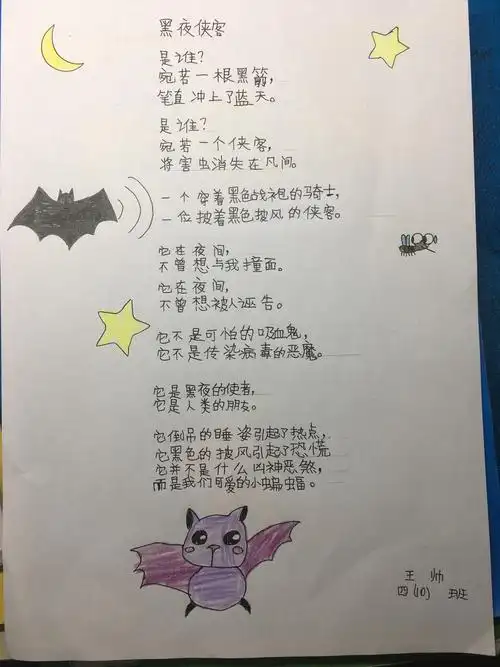 黑夜侠客
是谁?
宛若一根黑箭,
笔直冲上了蓝天。
是谁?
宛若一个侠客,
将害虫消失在凡间。
一个穿着黑色战袍的骑士,
一位披着黑色披风的侠客。
它在夜间,
不曾想与我撞面。
它在夜间,
不曾想被人诬告。
它不是可怕的吸血鬼,
它不是传染病毒的恶魔。
它是黑夜的使者,
它是人类的朋友。
它倒吊的睡姿引起了热点,
它黑色的披风引起了恐慌
它并不是什么凶神恶煞,
而是我们可爱的小蝙蝠。
王帅
四(10)班